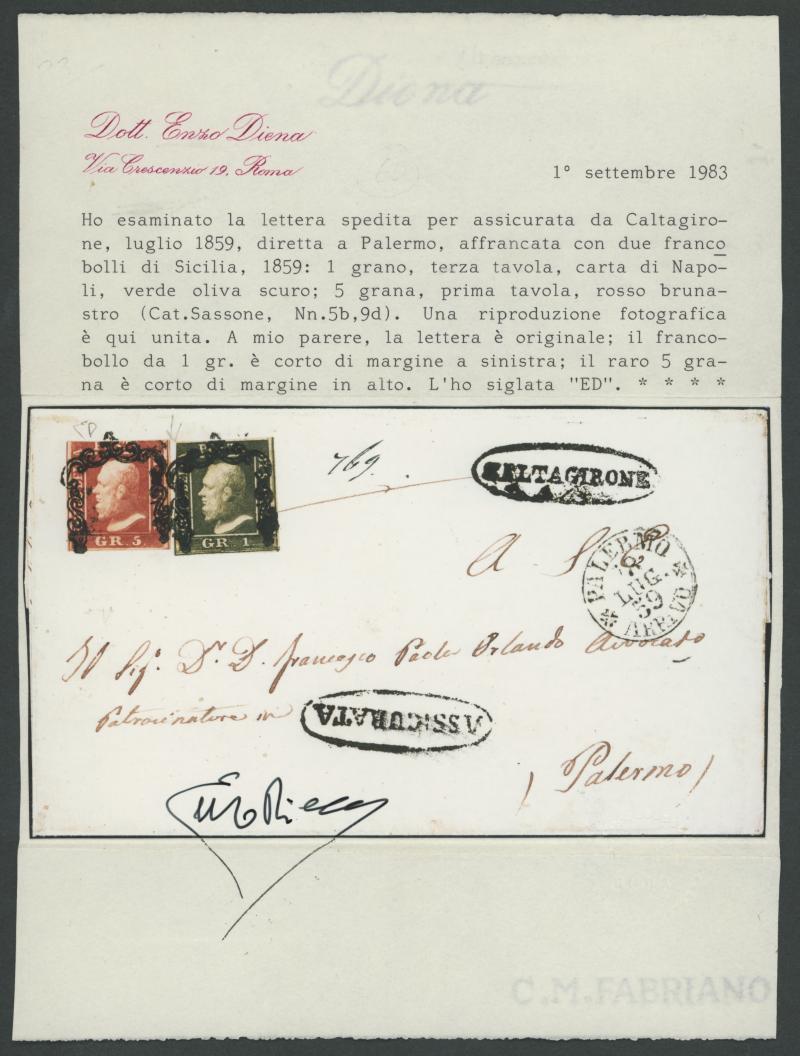 Diena
Dott. Enzo Diena
Via Crescenzio 19, Roma
1° settembre 1983
Ho esaminato la lettera spedita per assicurata da Caltagiro-
ne, luglio 1859, diretta a Palermo, affrancata con due franco
bolli di Sicilia, 1859: 1 grano, terza tavola, carta di Napo-
li, verde oliva scuro; 5 grana, prima tavola, rosso bruna-
stro (Cat.Sassone, Nn.5b,9d). Una riproduzione fotografica
è qui unita. A mio parere, la lettera è originale; il franco-
bollo da 1 gr. è corto di margine a sinistra; il raro 5 gra-
na è corto di margine in alto. L'ho siglata "ED". * * * *
GR. 5
GR. 1
769.
CALTAGIRONE
PALERMO
LUG.
59
ARRIVO
A S
Il Sigr. Dr. D. Francesco Paolo Orlando Avvocato
Patrocinatore in
ASSICURATA
Palermo
C.M.FABRIANO